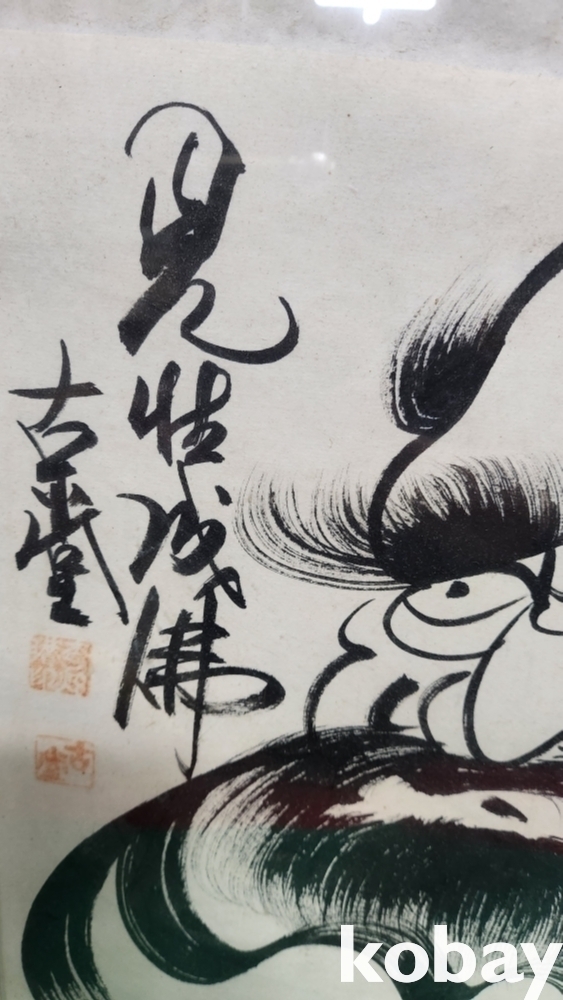 見性成佛
古堂
kobay